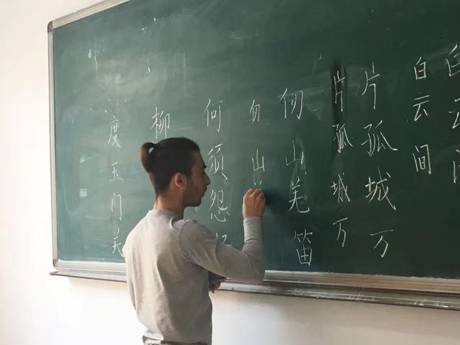 白云间
片孤城万
片孤城万
仞山羌笛
山
何须怨
柳
度玉门关